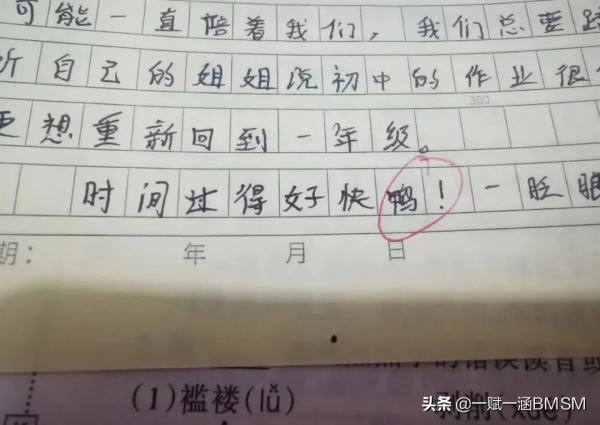 可能一直陪着我们，我们总要
自己的姐姐说初中的作业很
300
想重新回到一年级。
时间过得好快鸭！一眨眼
期： 年 月 日
(1)褴褛(lǚ) 剥削(xuē)
头条 @一赋一涵BMSM